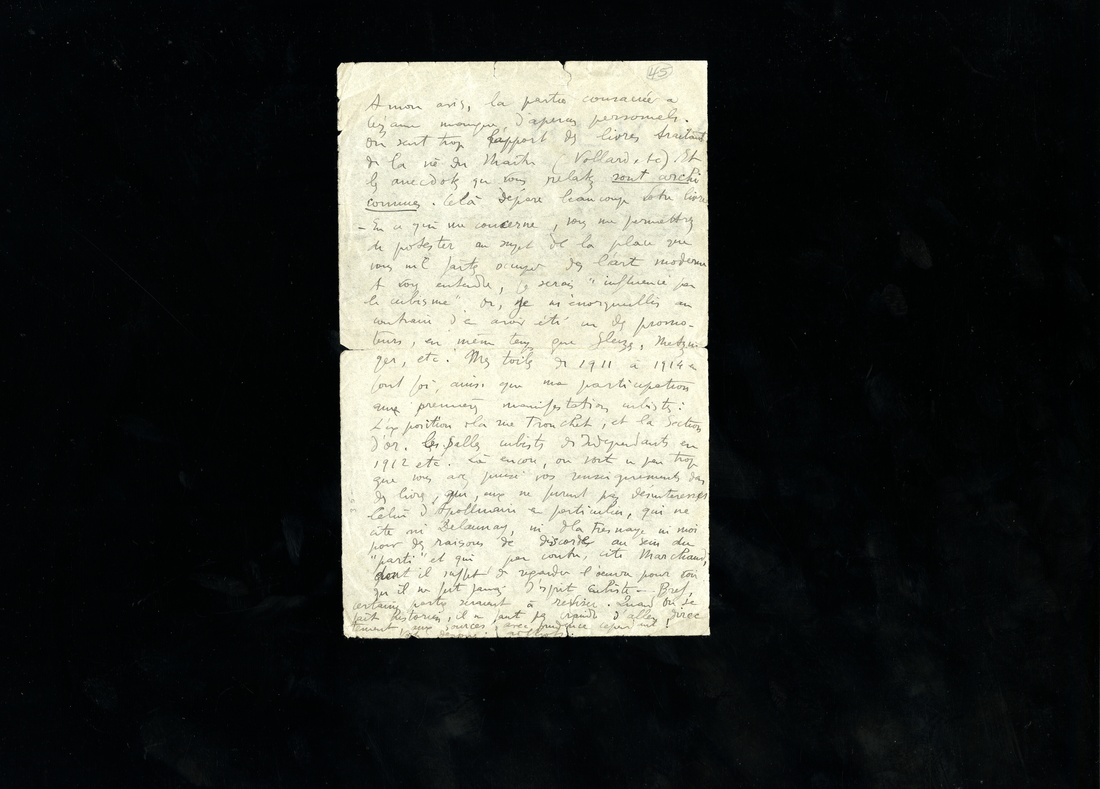 45
A mon avis, la partie consacrée a
Cézanne manque d'aperçus personnels.
On sent trop l'apport des livres traitant
de la vie du Maître (Vollard, etc). Et
les anecdotes que vous relatez sont archi
connues. Celà dépare beaucoup votre livre
- En ce qui me concerne, vous me permettrez
de protester au sujet de la place que
vous me faites occuper dans l'art moderne
A vous entendre, je serais "influencé par
le cubisme" or, je m'énorgueillis au
contraire d'en avoir été un des promo-
teurs, en même temps que Gleizes, Metzin
ger, etc. Mes toiles de 1911 à 1914 en
font foi, ainsi que ma participation
aux premières manifestations cubistes:
L'exposition de la rue Tronchet, et la Section
d'or, les salles cubistes des Indépendants en
1912 etc. Là encore, on voit un peu trop
que vous avez puisé vos renseignements dans
des livres, qui, eux ne furent pas désinteressés
Celui d'Apollinaire en particulier, qui ne
cite ni Delaunay, ni de la Fresnaye, ni moi
pour des raisons de discorde au sein du
"parti" et qui par contre, cite Marchand,
dont il suffit de regarder l'oeuvre pour voir
qu'il ne fut jamais d'esprit cubiste - Bref,
certaines parties seraient à reviser. Quand on se
fait historien, il ne faut pas craindre d'aller direc
tement aux sources, avec prudence cependant,